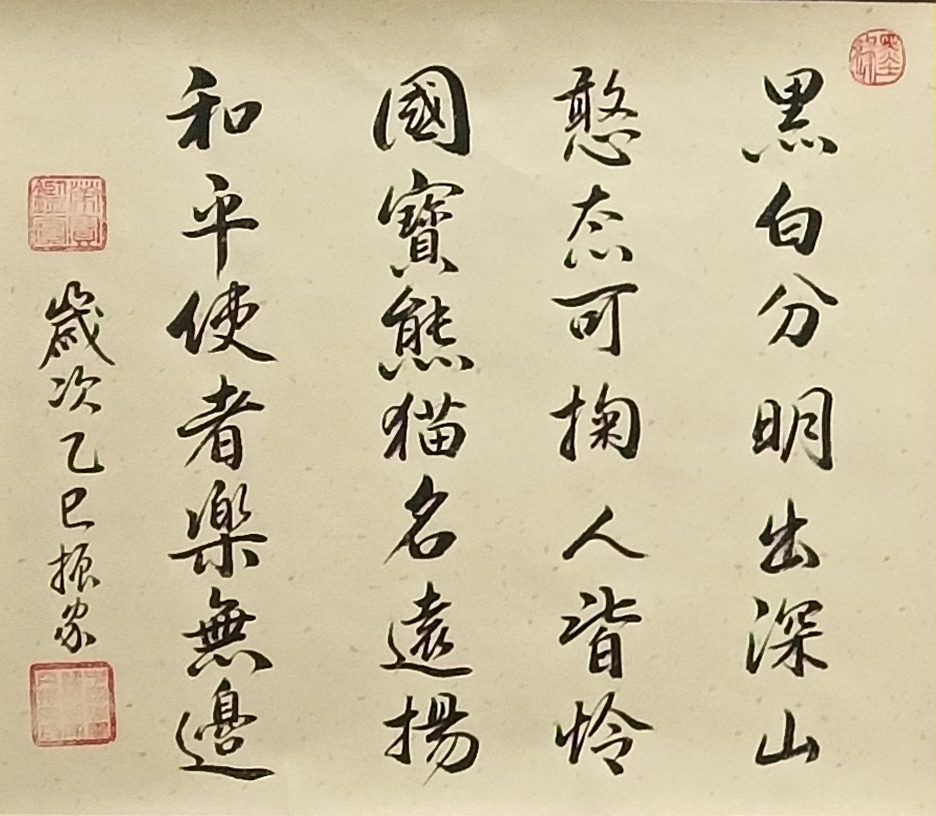 黑白分明出深山
憨态可掬人皆怜
國寶熊猫名遠揚
和平使者楽無邊
歲次乙巳振家